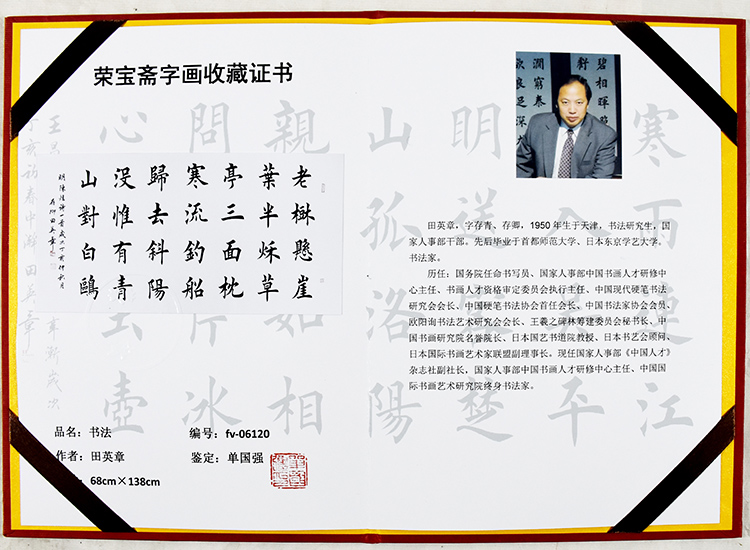 荣宝斋字画收藏证书
老樹懸崖
葉半秌草
亭三面枕
寒流釣船
歸去斜陽
沒惟有青
山對白鷗
品名：书法
编号：fv-06120
作者：田英章
鉴定：单国强
68cm×138cm
田英章，字存青、存卿，1950年生于天津，书法研究生，国
家人事部干部。先后毕业于首都师范大学、日本东京学艺大学。
书法家。
历任：国务院任命书写员、国家人事部中国书画人才研修中
心主任、人事部人才资格审定委员会执行主任、中国现代硬笔书法
研究会会长、中国硬笔书法协会首任会长、中国书法家协会会员、
欧阳询书法艺术研究会会长、王羲之碑林筹建委员会秘书长、中
国书画研究院名誉院长、日本国艺书道院教授、日本书艺会顾问、
日本国际书画艺术家联盟副理事长。现任国家人事部《中国人才》
杂志社副社长，国家人事部中国书画人才研修中心主任、中国国
际书画艺术研究院终身书法家。
寒雨連江
入吳平
明送客楚
山孤洛陽
親
如相
問
片冰
心
玉壺